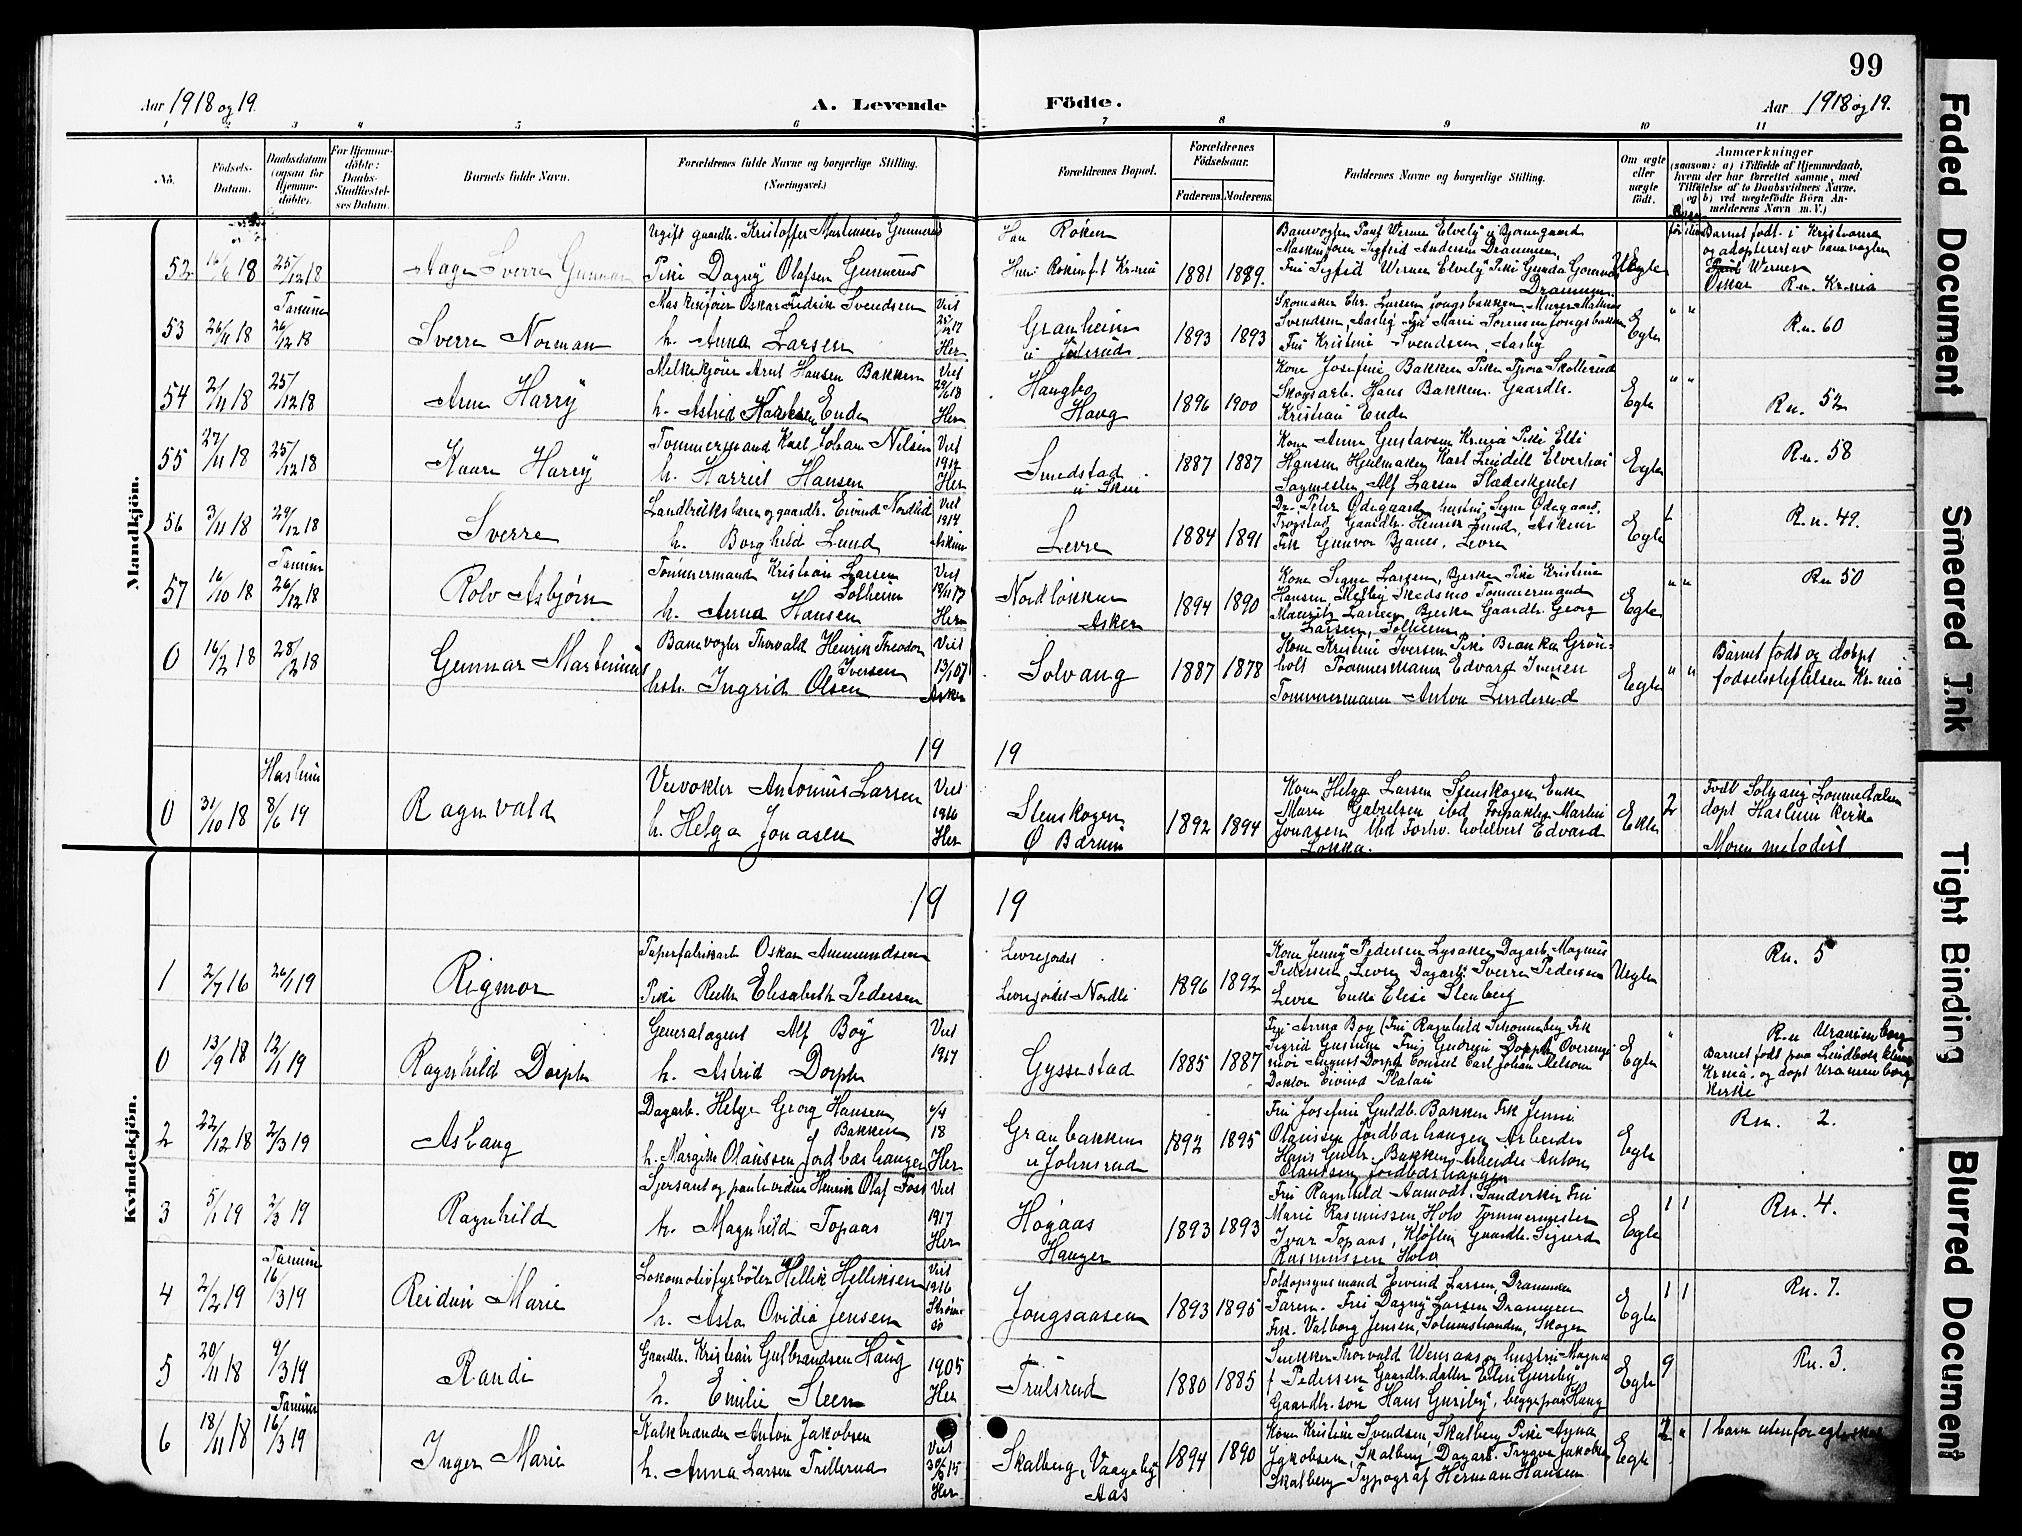 99
Aar 1918 og 19.
A. Levende Födte.
Aar 1918 og 19.
1 2 3 4 5 6 7 8 9 10 11
No.
Födsels-Datum.
Daabsdatum (ogsaa for Hjemmedöbte).
For Hjemmedöbte: Daabs-Stadfæstelses Datum.
Barnets fulde Navn.
Forældrenes fulde Navne og borgerlige Stilling.
(Næringsvei.)
Forældrenes Bopæl.
Forældrenes Födselsaar.
Faderens. Moderens.
Faddernes Navne og borgerlige Stilling.
Om ægte eller uægte födt.
Anmærkninger
(saasom: a) i Tilfælde af Hjemmedaab, hvem der har forrettet samme, med Tilföielse af to Daabsvidners Navne, og b) ved uægtefödte Börn Anmelderens Navn m. V.)
Mandkjön.
52 16/6 18 25/12 18
Aage Sverre Gunnar
Ugift gaardbr. Kristoffer Martinsen Gunnerud
Pike Dagny Olafsen Gunnerud
Han Röken
1881 1889.
Banevogter Paul Werner Elvely
Maskinför. Sigfrid Andersen Drammen,
Fru Sigfrid Werner Elvely Pike Gunda
Drammen
Uegte
Barnet födt i Kristiania
og adopteret av banevogter
Werner
Oskar R.n. Kr.nia
53 26/11 18 Tanum 26/12 18
Sverre Norman
Maskinfører Oskar Fredrik Svendsen
h. Anna Larsen
Viet 25/12 17 Her
Granheim
1893 1893
Skomaker Chr. Larsen Jongsbakken Murer Mathias
Svendsen, Aasby Fru Marie Sørensen Jongsbakken
Fru Kristine Svendsen, Aasby
Egte
" "
R.n. 60
54 2/11 18 25/12 18
Arne Harry
Melkekjörer Arnt Hansen Bakken
h. Astrid Haakse Ende
Her
Haugbo
Haug
1896 1900
Kone Josefine Bakken Pike Thora Skollerud
Skogsarb. Hans Bakken. Gaardbr.
Kristian Ende
Egte
" "
R.n. 52
55 27/11 18 25/12 18
Kaare Harry
Tømmermand Karl Johan Nilsen
h. Harriet Hansen
Viet 1912 Her
Smedstad
u Skui
1887 1887
Kone Anna Gustavsen Kr.nia Pike Elli
Hansen Hjulmaker Karl Lindell Elverhøi
Sagmester Alf Larsen Slædeskjulet
Egte
R.n. 58
56 3/11 18 29/12 18
Sverre
Landbrukslærer og gaardbr. Eivind Nordlid
h. Borghild Lund
Viet 1914 Askim
Levre
1884 1891
Dr. Peter Ødegaard hustru Signe Ødegaard,
Trøgstad Gaardbr. Henrik Lund, Askim
Frk Gunvor Bjanes, Levre
Egte
R.n. 49.
57 16/10 18 Tanum 26/12 18
Rolv Asbjørn
Tømmermand Kristian Larsen
Solheim
h. Anna Hansen
Viet 18/11 17 Her
Nordløkken
Asker
1894 1890
Kone Signe Larsen, Bjerke Pike Kristine
Hansen Skedsmo Tømmermand
Mauritz Larsen Bjerke Gaardbr. Georg
Larsen, Solheim
Egte
" "
R.n 50
0 16/2 18 28/2 18
Gunnar Martinius
Banevogter Thorvald Henrik Theodor
Iversen
hstr. Ingrid Olsen
Viet 13/1 07 Asker
Solvang
1887 1878
Kone Kristine Iversen Pike Branka Grön-
holt Tømmermann Edvard Iversen
Tømmermann Anton Linderud
Egte
" "
Barnet födt og döpt
fødselsstiftelsen Kr.nia
19 19
0 31/10 18 Haslum 8/6 19
Ragnvald
Veivokter Antonius Larsen
h. Helga Jonasen
Viet 1916 Her
Stenskogen
Ø Bærum
1892 1894
Kone Helga Larsen Stenskogen Enke
Marie Gabrielsen ibd Forpakter Martin
Jonasen ibd Forhv. hotelvert Edvard
Løkka.
Ekte
2
Født Solvang Lommedalen
døpt Haslum Kirke
Moren metodist
Kvindekjön.
19 19
1 2/7 16 26/1 19
Rigmor
Papirfabrikarb Oskar Ammundsen
Pike Ruth Elisabeth Pedersen
Levrejordet
Levrejordet Nordli
1896 1892
Kone Jenny Pedersen Lysaker Dagarb. Magnus
Pedersen Levre Dagarb. Sverre Pedersen
Levre Enke Elise Stenberg
Uegte
R.n. 5
0 13/9 18 12/1 19
Ragnhild Dorph
Generalagent Alf Boy
h. Astrid Dorph
Viet 1917
Gyssestad
1885 1887
Fru Anna Boy Fru Ragnhild Schonneberg Frk
Sigrid Fru Gudrun Dorph Overinge-
niør August Dorph Consul Carl Johan Melsom
Doktor Eivind Platou
Egte
"
R.n Uranienborg
Barnet födt paa Lindboes klinik
Kr.nia. og døpt Uranienborg
kirke
2 22/12 18 2/3 19
Aslaug
Dagarb. Helge Georg Hansen
Bakken
h. Margit Olaussen Jordbærhaugen
6/4 18 Her
Granbakken
u Johnsrud
1892 1895
Fru Josefine Guldb. Bakken Frk Jenni
Olaussen Jordbærhaugen Arbeider
Hans Guldb. Bakken Arbeider Anton
Olaussen Jordbærhaugen
Egte
R.n. 2.
3 5/1 19 2/3 19
Ragnhild
Sersant og Henrik Olaf Foss
h. Magnhild Topaas
Viet 1917 Her
Høgaas
Hauger
1893 1893
Fru Ragnhild Aamodt, Sanderskin Fru
Marie Rasmussen Holo Tømmermester
Ivar Topaas, Kløften Gaardbr. Sigurd
Rasmussen Holo
Egte
1 1
R.n. 4.
4 2/2 19 Tanum 16/3 19
Reidun Marie
Lokomotivfyrbøter Hellik Helliksen
h. Asta Ovidia Jensen
Viet 1916 Strømsø
Jongsaasen
1893 1895
Toldopsynsmand Eivind Larsen, Drammen
Farm. Fru Dagny Larsen Drammen
Frk. Valborg Jensen, Solumstranden, Skoger
Egte
1 1
R.n. 7.
5 20/11 18 9/3 19
Randi
Gaardbr. Kristian Gulbrandsen Haug
h. Emilie Steen
1905 Her
Trulsrud
1880 1885
Snekker Thorvald Wensaas og hustru Magna
f Pedersen Gaardbr. datter Elin Guriby
Gaardbr. søn Hans Guriby, begge paa Haug
Egte
9
R.n. 3.
6 18/11 18 Tanum 16/3 19
Inger Marie
Kalkbrænder Anton Jakobsen
h. Anna Larsen Tillerud
Viet 30/5 15 Her
Skalberg, Vaageby
Aas
1894 1890
Kone Kristine Svendsen Skalberg Pike Agna
Jakobsen, Skalberg Dagarb. Trygve Jakobsen
Skalberg Typograf Herman Hansen
Egte
2 "
1 barn utenfor egteskap
Faded Document
Smeared Ink
Tight Binding
Blurred Document